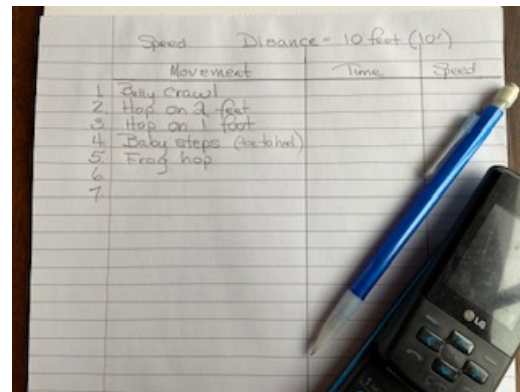 Speed Disance = 10 feet (10')
Movement Time Speed
1. Belly crawl
2. Hop on 2 feet
3. Hop on 1 foot
4. Baby steps (toe to heel)
5. Frog hop
6.
7.
LG